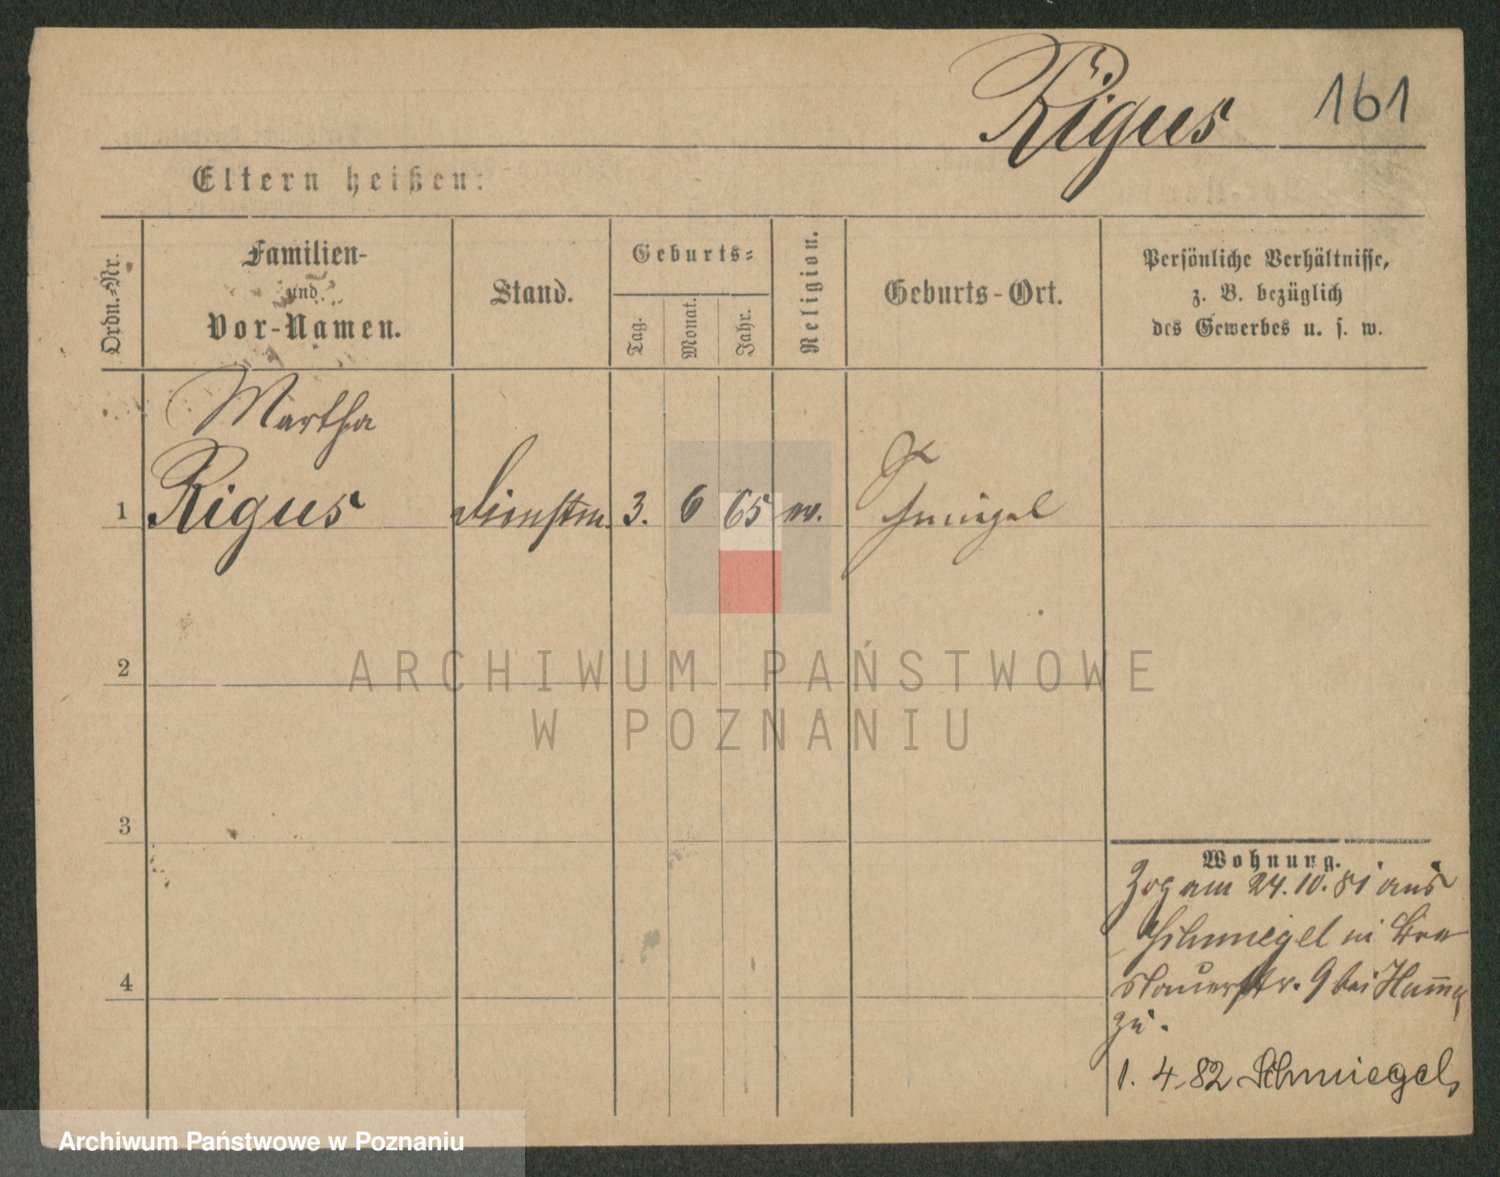 Rigus 161
Eltern heißen:
Ordn.=Nr.
Familien-
und
Vor-Namen.
Stand.
Geburts=
Tag.
Monat.
Jahr.
Religion.
Geburts-Ort.
Persönliche Verhältnisse,
z. B. bezüglich
des Gewerbes u. s. w.
Martha
1 Rigus Dienstm. 3. 6 65 Schmiegel
2
ARCHIWUM PAŃSTWOWE
W POZNANIU
3
Wohnung.
Zog am 24.10.81 aus
Schmiegel in Bres
lauerstr. 9 bei
zu.
4
1. 4. 82 Schmiegel
Archiwum Państwowe w Poznaniu